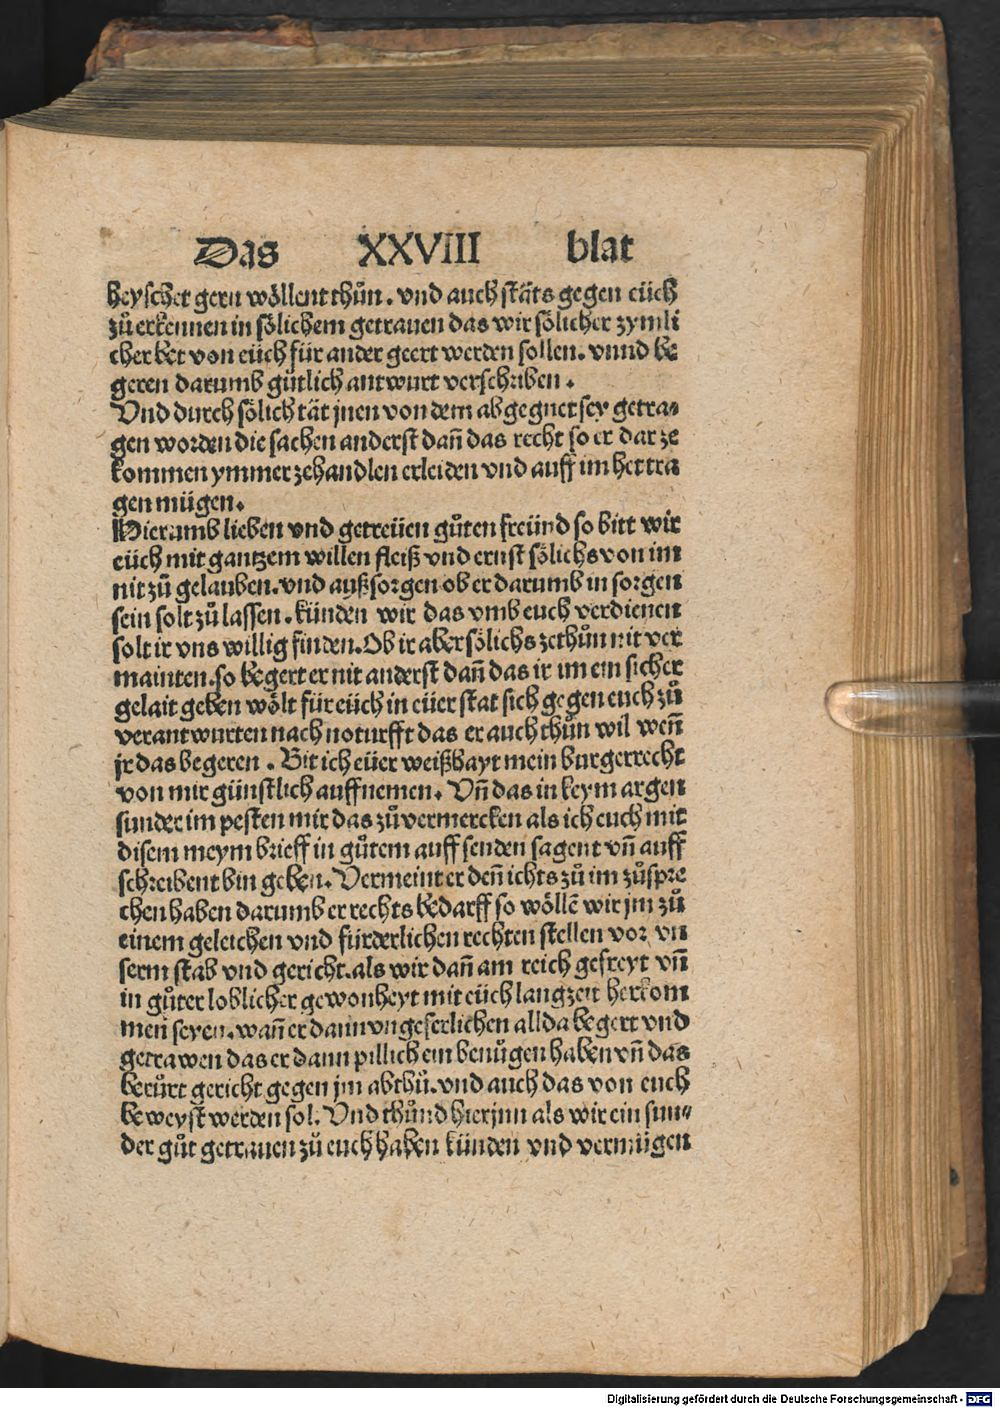 Das XXVIII blat
heyschet gern wöllent thůn. vnd auch stäts gegen eüch
zů erkennen in sölichem getrauen das wir sölicher zymli
cher bet von eüch für ander geert werden sollen. vnnd be
geren darumb gütlich antwurt verschriben.
Vnd durch sölich tät jnen von dem abgegnet sey getra⸗
gen worden die sachen anderst dañ das recht so er dar ze
kommen ymmer zehandlen erleiden vnd auff im her tra
gen mügen.
Hierumb lieben vnd getreüen gůten freünd so bitt wir
eüch mit gantzem willen fleiß vnd ernst sölichs von im
nit zů gelauben. vnd außsorgen ob er darumb in sorgen
sein solt zů lassen. künden wir das vmb euch verdienen
solt ir vns willig finden. Ob ir aber sölichs zethůn nit ver
mainten. so begert er nit anderst dañ das ir im ein sicher
gelait geben wölt für eüch in eüer stat sich gegen euch zů
verantwurten nach noturfft das er auch thůn wil weñ
jr das begeren. Bit ich eüer weißhayt mein burgerrecht
von mir günstlich auffnemen. Vñ das in keym argen
sunder im pesten mir das zů vermercken als ich euch mit
disem meym brieff in gůtem auff senden sagent vñ auff
schreibent bin geben. Vermeint er deñ ichts zů im zů spre
chen haben darumb er rechts bedarff so wöllē wir jm zů
einem geleichen vnd fürderlichen rechten stellen vor vn
serm stab vnd gericht. als wir dañ am reich gefreyt vñ
in gůter loblicher gewonheyt mit eüch langzeit herkom
men seyen. wañ er dann vngeferlichen allda begert vnd
getrawen das er dann pillich ein benůgen haben vñ das
berůrt gericht gegen jm abthů. vnd auch das von euch
beweyst werden sol. Vnd thůnd hierjnn als wir ein sun⸗
der gůt getrauen zů euch haben künden vnd vermügen
Digitalisierung gefördert durch die Deutsche Forschungsgemeinschaft - DFG